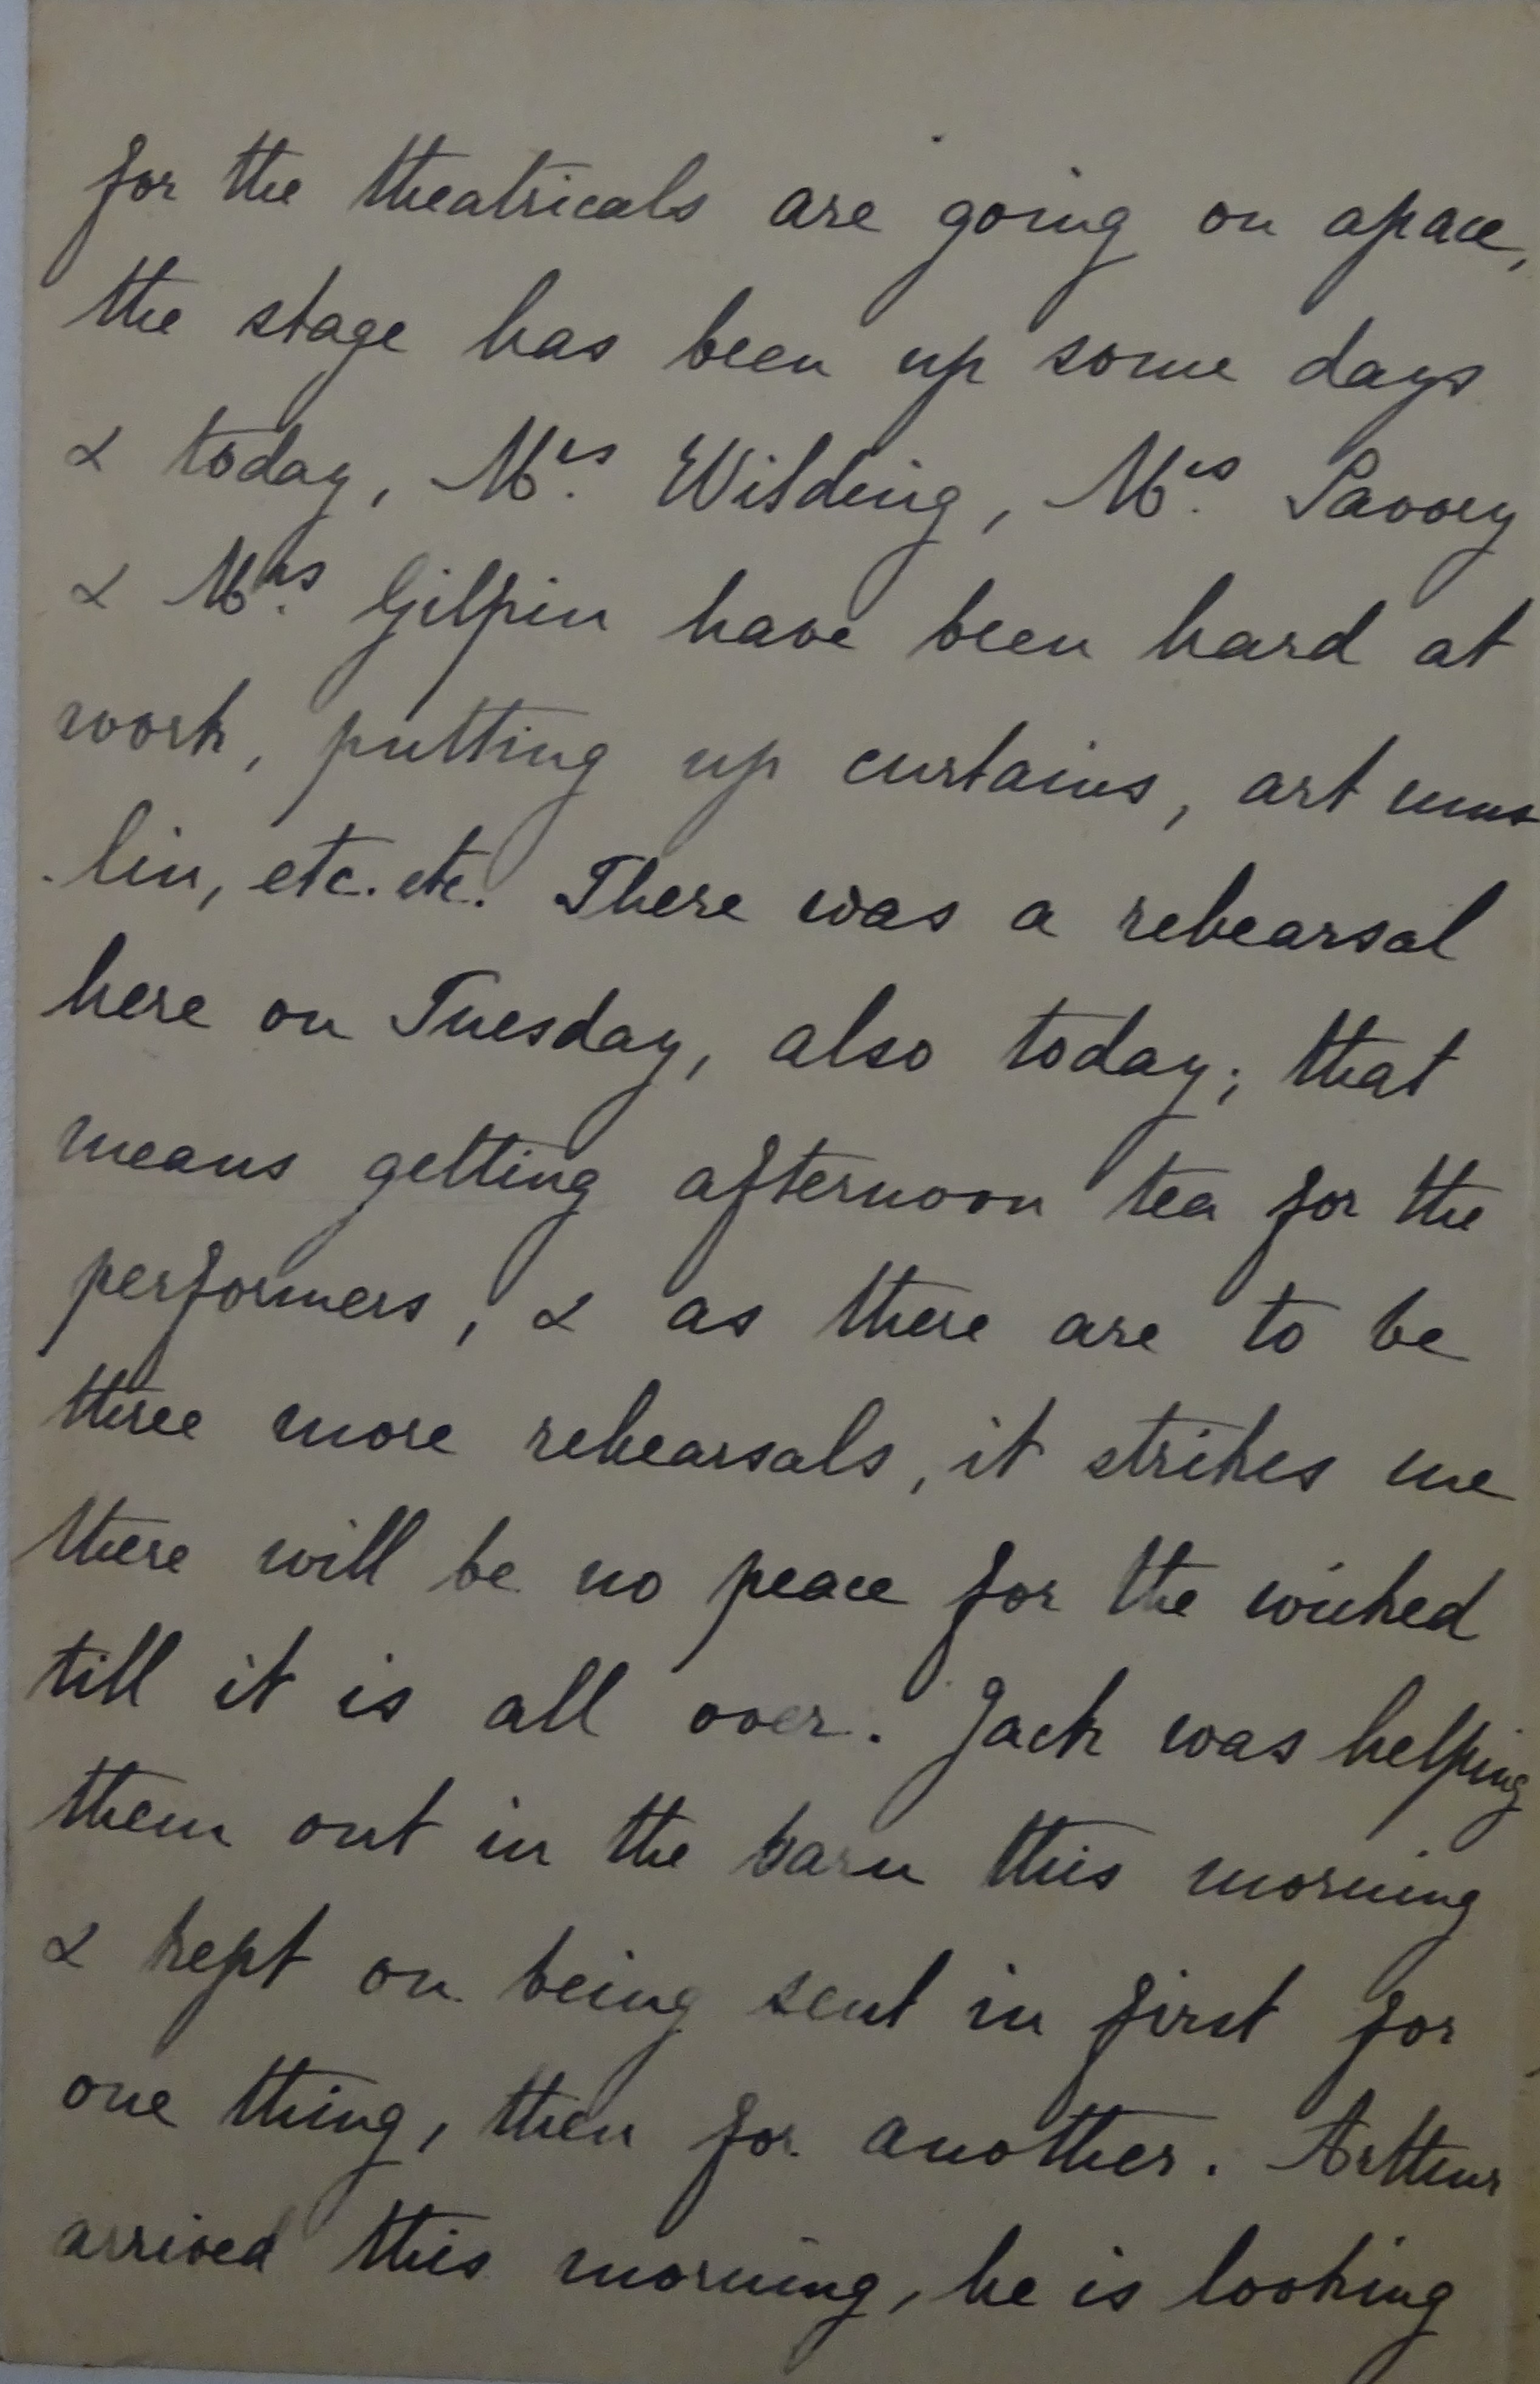 for the theatricals are going on apace,
the stage has been up some days
& today, Mrs. Wilding, Mrs. Savory
& Mrs. Gilpin have been hard at
work, putting up curtains, art mus
-lin, etc. etc. There was a rehearsal
here on Tuesday, also today; that
means getting afternoon tea for the
performers, & as there are to be
three more rehearsals, it strikes me
there will be no peace for the wicked
till it is all over. Jack was helping
them out in the barn this morning
& kept on being sent in first for
one thing, then for another. Arthur
arrived this morning, he is looking